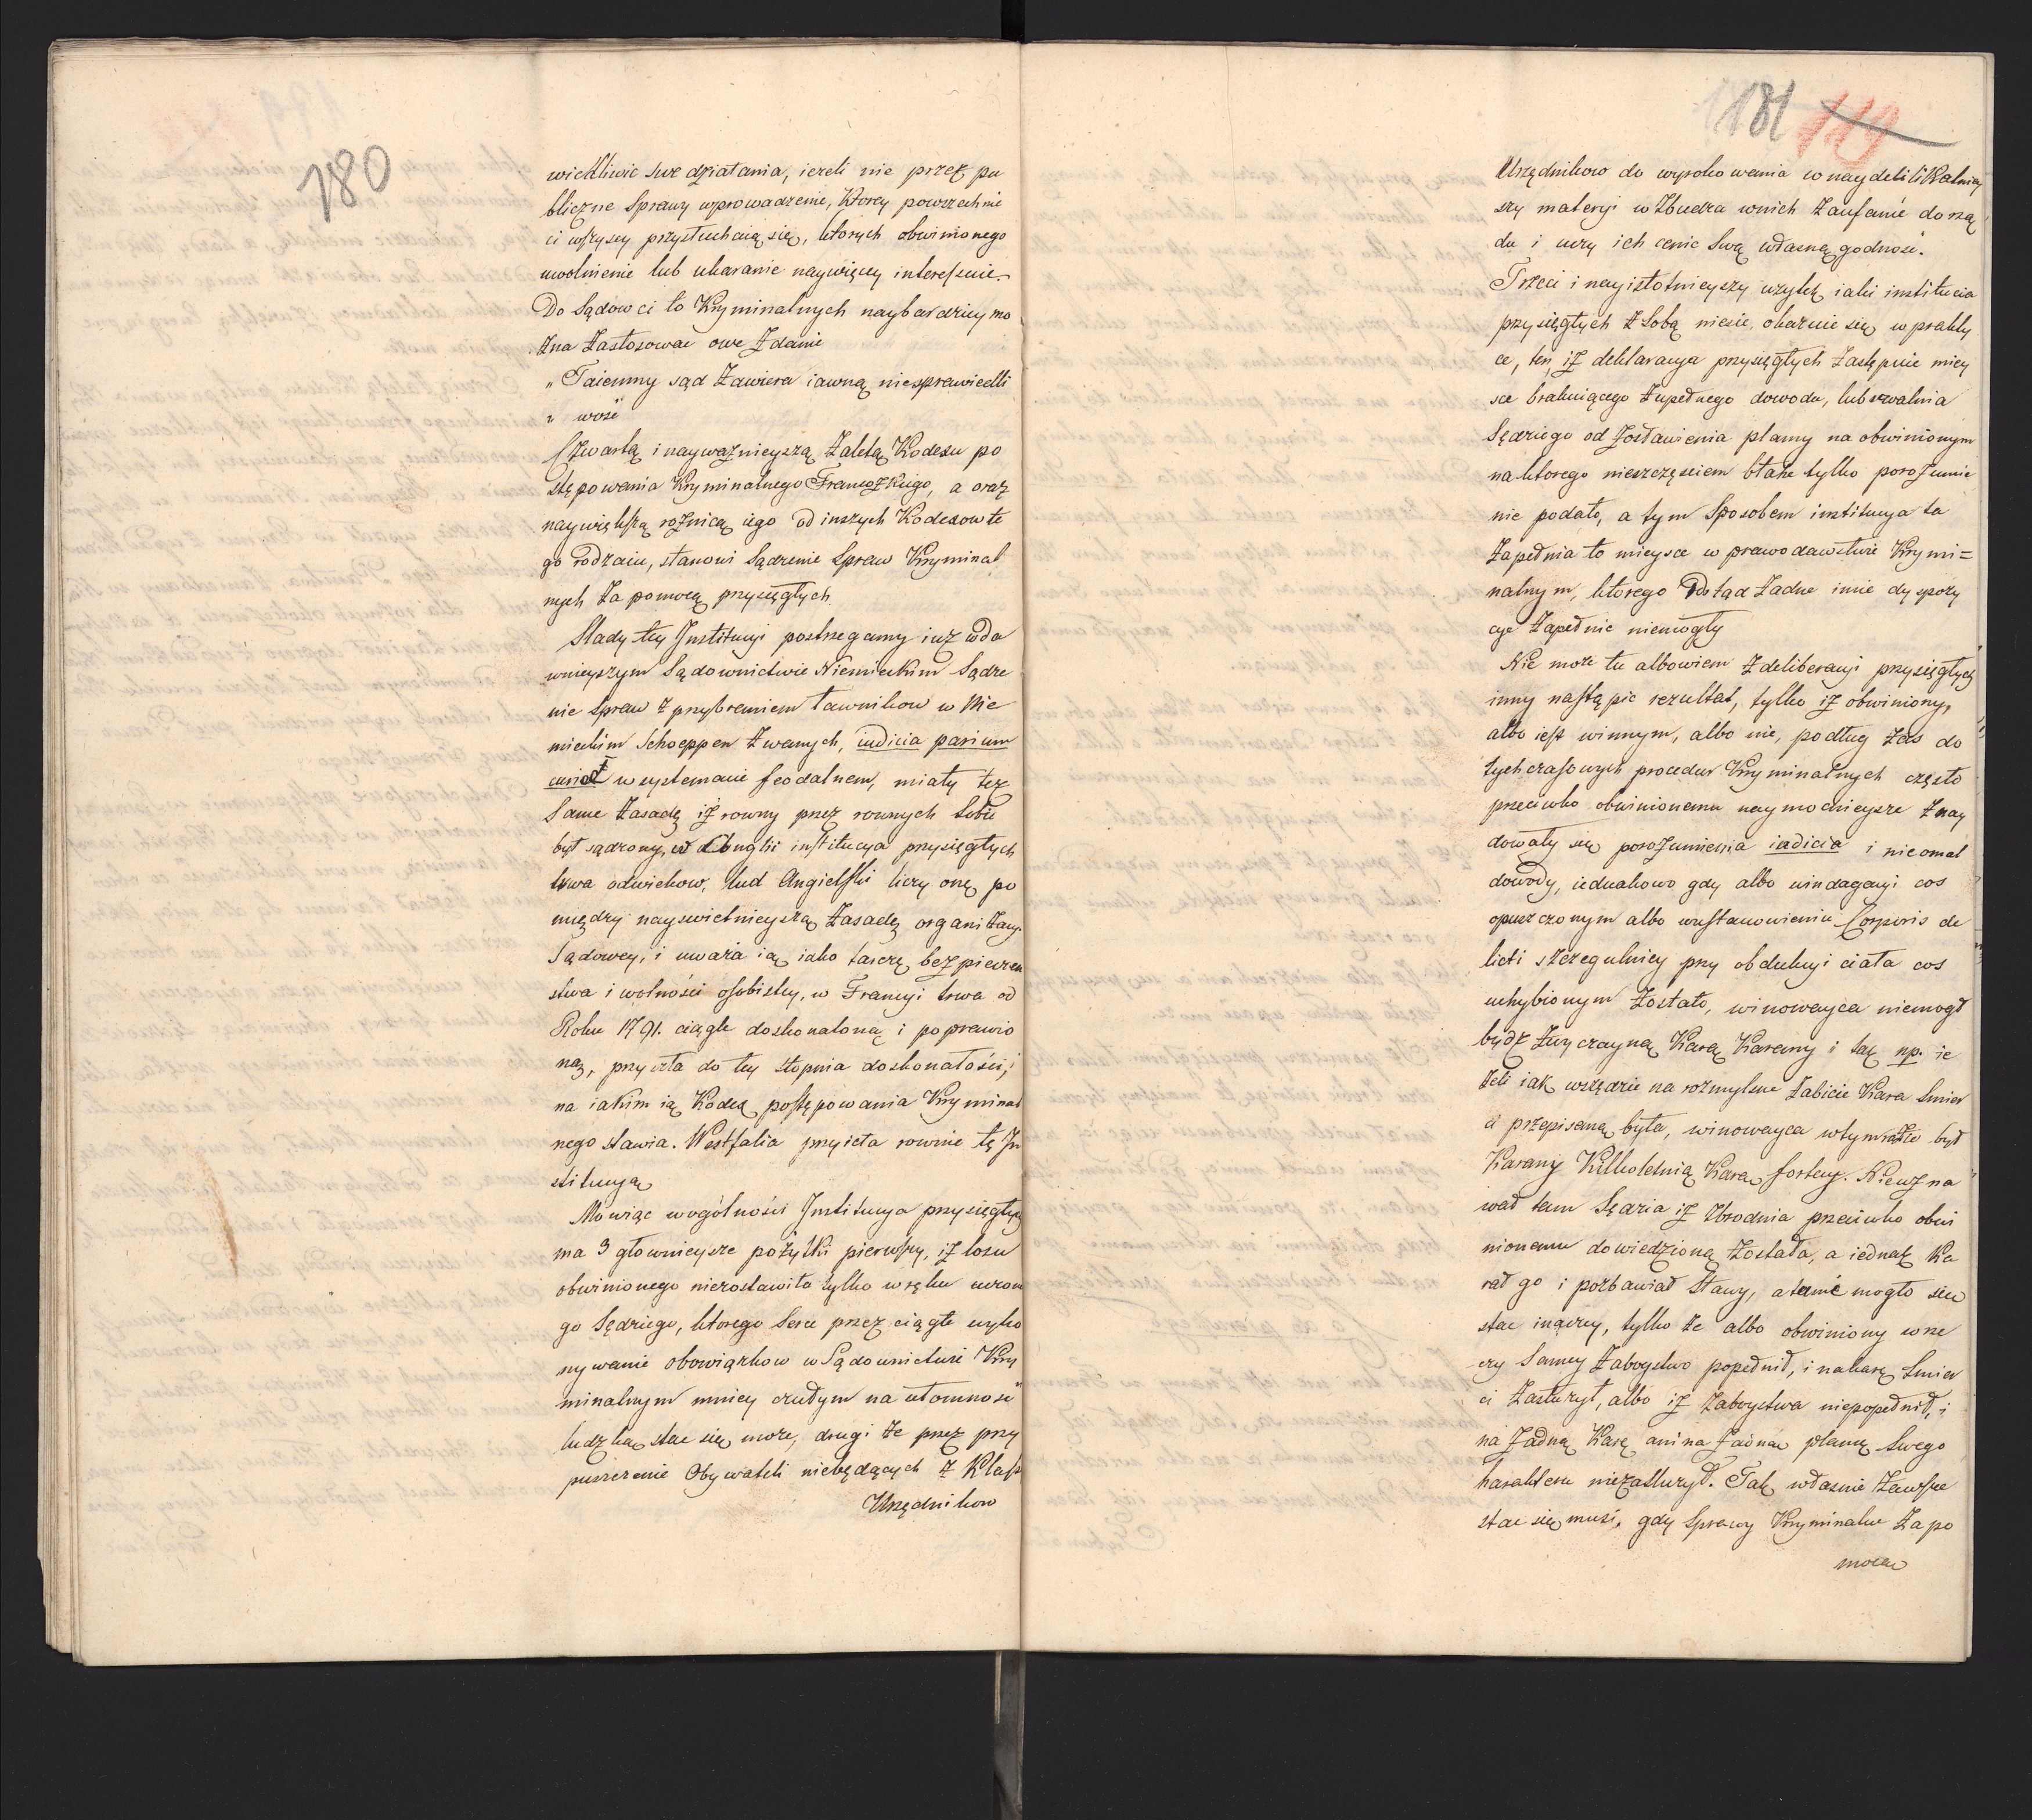 180
wiedliwić swe działania, iezeli nie przez pu
bliczne Sprawy wprowadzenie, Ktorey powszechnie
ci wszyscy przysłuchaią się, ktorych obwinionego
uwolnienie lub ukaranie naywięcey interessuie.
Do Sądow ci to Kryminalnych naybardziey mo
zna Zastosować owe Zdanie
„Taiemny sąd Zawiera iawną niesprawiedli
„ wość
Czwartą i naywaznieyszą Zaletą Kodexu po
stępowania Kryminalnego Francuzkiego, a oraz
naywiększą roznicą iego od inszych Kodexow te
go rodzaiu, stanowi Sądzenie Spraw Kryminal
nych Za pomocą przysięgłych.
Slady tey Instytucyi postrzegamy iuz wda
wnieyszym Sądownictwie Niemieckim Sądze
nie Spraw z przybraniem Ławnikow w Nie
mieckim Schoeppen Zwanych, iudicia parium
curiae w systemacie feodalnem, miały tez
Same Zasadę iz rowny przez rownych Sobie
był sądzony, w Anglii instytucya przysięgłych
trwa odwiekow, lud Angielski liczy onę po
między nayswietnieyszą Zasadę organizacyi
Sądowey, i uwaza ią iako tarczę bezpieczen
stwa i wolności osobistey, w Francyi trwa od
Roku 1791. ciągle doskonaloną i poprawio
ną, przyszła do tey stopnia doskonałości,
na iakim ią Kodex postępowania Kryminal
nego stawia. Westfalia przyięła rownie tę In
stitucyą
Mowiąc wogólności Instytucya przysięgłych
ma 3 głownieysze pożytki pierwszy, iz losu
obwinionego niezostawiła tylko w ręku uczone
go Sędziego, ktorego Serce przez ciągłe wyko
nywanie obowiązkow w Sądownictwie Kry
minalnym mniey czułym na ułomność
ludzką stać się może, drugi że przez przy
puszczenie Obywateli niebędących z Klass
Urzędnikow
181 119
Urzędnikow do wyrokowania w naydelikatniey
szy materyi w Zbudza wnich Zaufanie do rzą
du i uczy ich cenić Swą własną godność.
Trzeci i nayistotnieyszy uzytek iaki instytucia
przysięgłych z Sobą niesie, okazuie się w prakty
ce, ten iz deklaracya przysięgłych Zastępuie miey
sce brakuiącego Zupełnego dowodu, lub uwalnia
Sędziego od Zostawienia plamy na obwinionym
na ktorego nieszczęsciem błahe tylko porozumie
nie podało, a tym Sposobem instytucya ta
Zapełnia to mieysce w prawodawstwie Krymi=
nalnym, ktorego Dotąd Żadne inne dyspozy
cye Zapełnić niemogły
Nie moze tu albowiem z deliberacyi przysięgłych
inny nastąpić rezultat, tylko iz obwiniony,
albo iest winnym, albo nie, podług Zas do
tychczasowych procedur Kryminalnych często
przeciwko obwinionemu naymocnieysze Znay
dowały się porozumienia indicia i nieomal
dowody, iednakowo gdy albo windagacyi cos
opuszczonym albo wustanowieniu Corporis de
licti szczegulniey przy obdukcyi ciała cos
uchybionym Zostało, winowayca niemogł
bydz Zwyczayną Karą Karany i tak np. ie
zeli iak wszędzie na rozmyslne Zabicie Kara Smier
ci przepisaną była, winowayca wtym razie był
Karany Kilkoletnią Karą fortecy. Nieuzna
wał tam Sędzia iz Zbrodnia przeciwko obwi
nionemu dowiedzioną Została, a iednak Ka
rał go i pozbawiał Sławy, a tamie mogło sie
stać inaczey, tylko że albo obwiniony w rze
czy Samey Zaboystwo popełnił, i nakarę Smier
ci Zasłużył, albo iz Zaboystwa niepopełnił, i
na Zadną Karę ani na Zadną plamę Swego
charakteru niezasłuzył. Tak własnie Zawsze
stać się musi, gdy Sprawy Kryminalne Za po
mocą